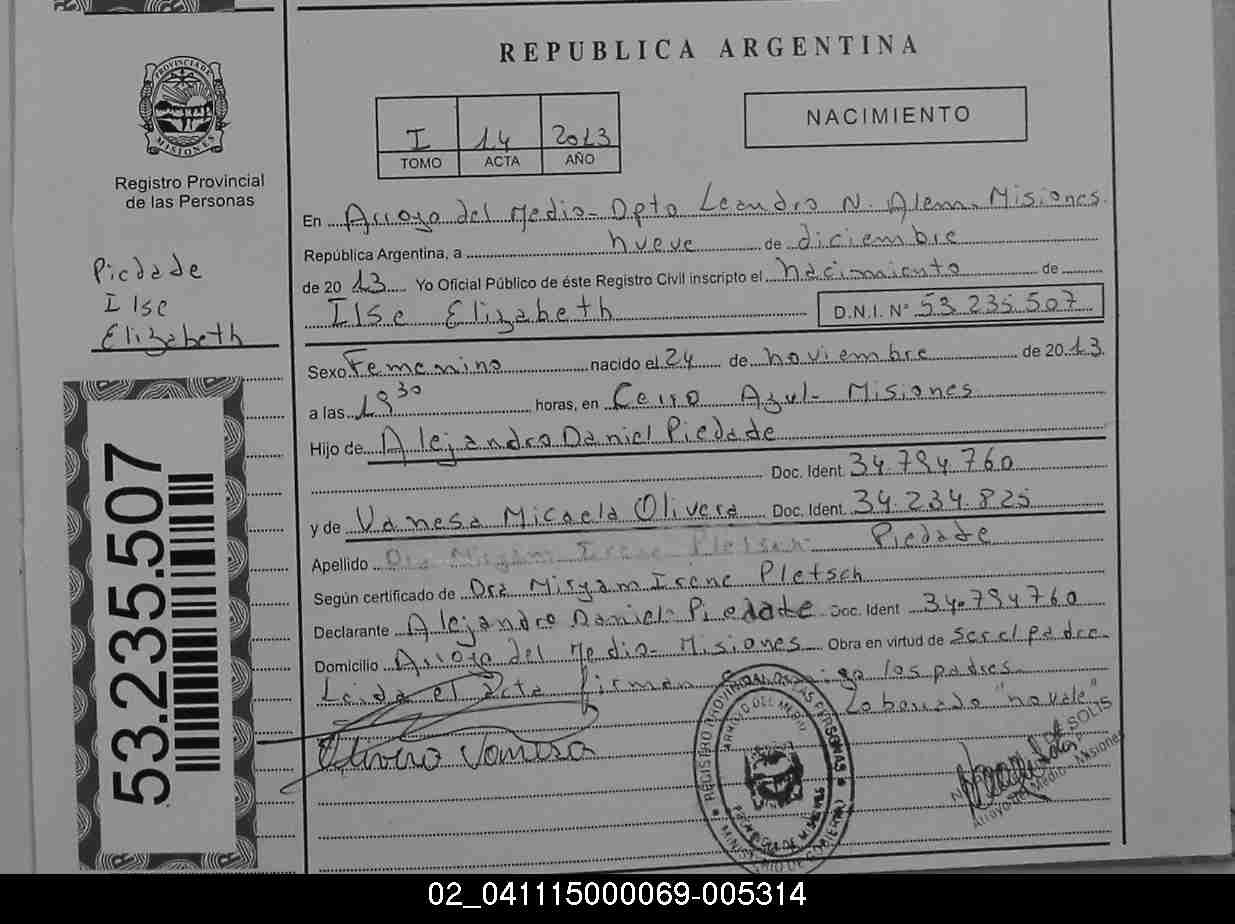 REPUBLICA ARGENTINA
PROVINCIA DE MISIONES
Registro Provincial
de las Personas
I 14 2013
TOMO ACTA AÑO
NACIMIENTO
Piedade
Ilse
Elizabeth
53.235.507
En Arroyo del Medio - Dpto Leandro N. Alem. Misiones.
República Argentina, a nueve de diciembre
de 2013 Yo Oficial Público de éste Registro Civil inscripto el nacimiento de
Ilse Elizabeth D.N.I. Nº 53.235.507
Sexo Femenino nacido el 24 de noviembre de 2013.
a las 19 30 horas, en Cerro Azul - Misiones
Hijo de Alejandro Daniel Piedade
Doc. Ident. 34.794.760
y de Vanesa Micaela Olivera Doc. Ident. 34.234.825
Apellido Dra Miryam Irene Pletsch Piedade
Según certificado de Dra Miryam Irene Pletsch
Declarante Alejandro Daniel Piedade Doc. Ident 34.794760
Domicilio Arroyo del Medio - Misiones Obra en virtud de ser el padre.
Leida el acta firman conmigo los padres.
Lo borrado "no vale"
Olivera Vanesa
REGISTRO PROVINCIAL DE LAS PERSONAS
ARROYO DEL MEDIO
PROVINCIA DE MISIONES
MINISTERIO DE GOBIERNO
DE SOLIS
Arroyo del Medio - Misiones
02_041115000069-005314